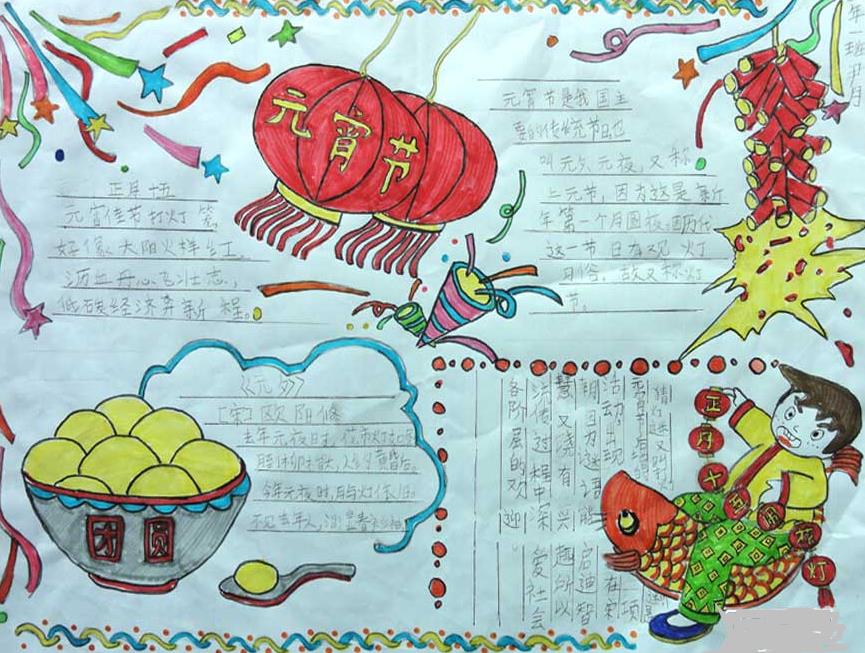 元宵节
正月十五
元宵佳节打灯笼
好像太阳火样红。
沥血丹心飞壮志,
低碳经济奔新程。
元宵节是我国主
要的传统节日,也
叫元夕、元夜,又称
上元节,因为这是新
年第一个月圆夜,因历代
这一节日有观灯
习俗,故又称灯
节。
《元夕》
[宋]欧阳修
去年元夜时,花市灯如
月上柳梢头,人约黄昏后。
今年元夜时,月与灯依旧。
不见去年人,泪
团圆
猜灯谜又
活动,出现
朝因为谜语
慧又饶有兴趣所以
流传过程中深
各阶层的欢迎
启迪智
爱社会
正月十五闹花灯
年一班